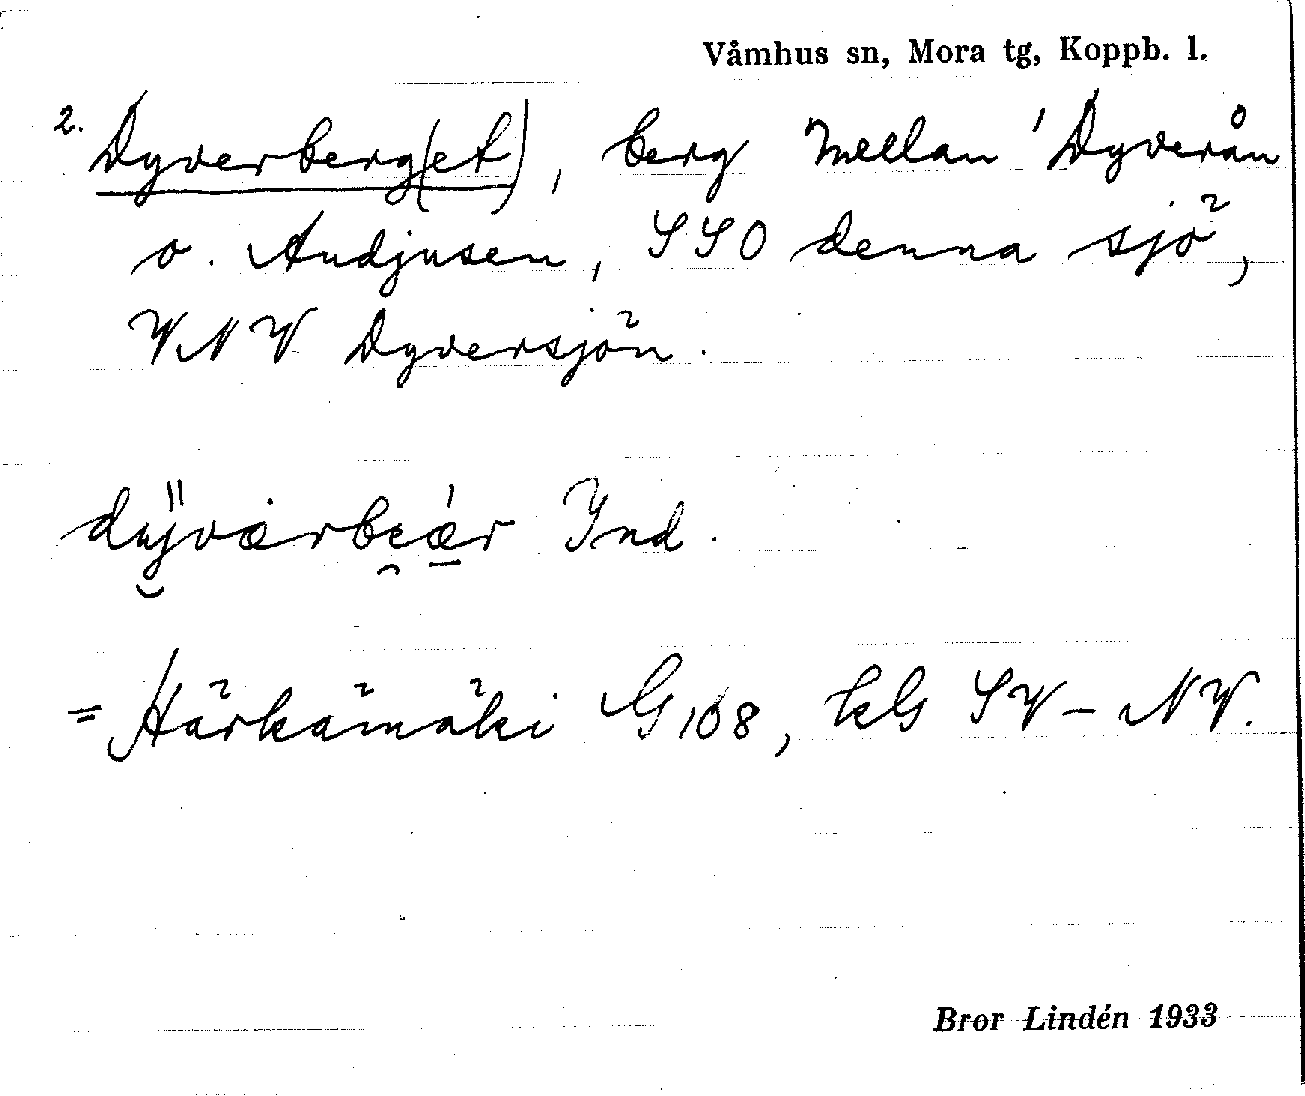 Våmhus sn, Mora tg, Koppb. l.
2. Dyverberg(et), berg mellan 'Dyverån
o. Andjusen, SSO denna sjö,
VNV Dyversjön.
Ind.
= Härkämäki G168, kG SV – NV.
Bror Lindén 1933